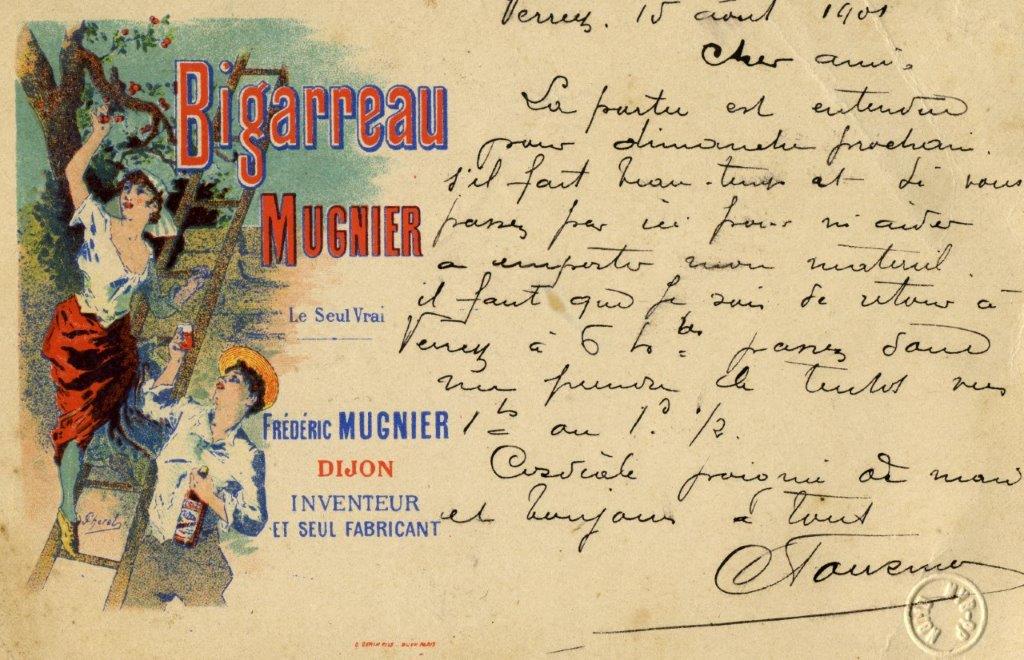 Bigarreau
MUGNIER
Le Seul Vrai
FRÉDÉRIC MUGNIER
DIJON
INVENTEUR
ET SEUL FABRICANT
Cheret
Verrey. 15 août 1901
Cher ami,
La partie est entendue
pour dimanche prochain.
s'il fait beau-temps et si vous
passez par ici pour m'aider
a emporter mon materiel.
il faut que je sois de retour à
Verrey à 6 h passez donc
me prendre de tantot vers
1h ou 1h 1/2.
Cordiale poignée de main
et bonjour à tous